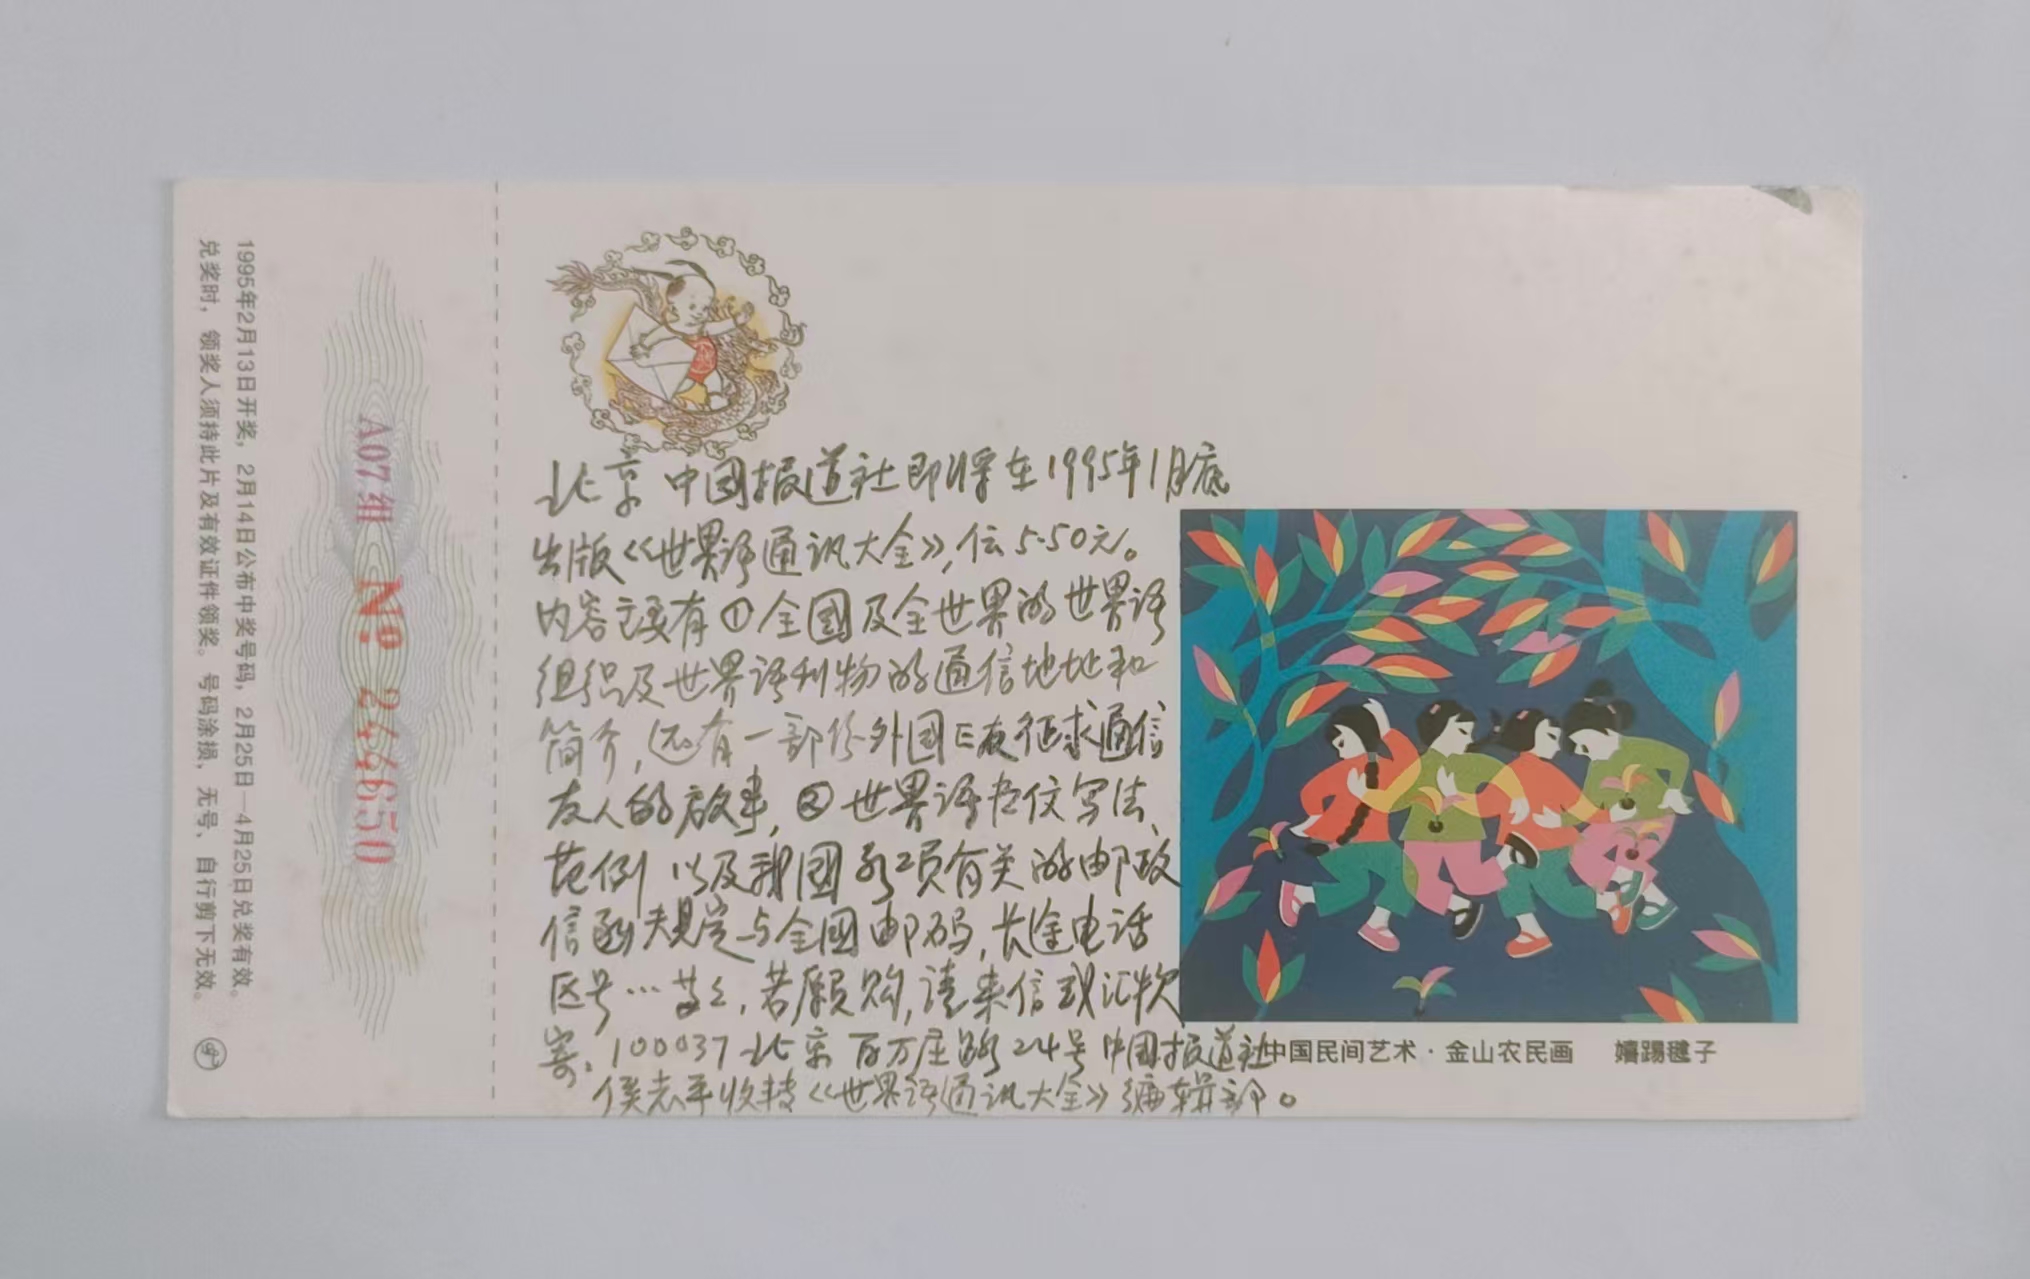 1995年2月13日开奖，2月14日公布中奖号码，2月25日—4月25日兑奖有效。
兑奖时，领奖人须持此片及有效证件领奖。号码涂损，无号、自行剪下无效。
A07组 Nº 244650
北京 中国报道社即将在1995年1月底
出版《世界语通讯大全》，价5.50元。
内容主要有①全國及全世界的世界语
组织及世界语刊物的通信地址和
简介，还有一部份外国E友征求通信
友人的故事，②世界语书信写法、
范例 以及我國各项有关的邮政
信函规定与全國邮码，长途电话
区号…等等，若愿购，请来信或汇款
寄：100037北京百万庄路24号中国报道社
侯志平收转《世界语通讯大全》编辑部。
中国民间艺术·金山农民画 嬉踢毽子